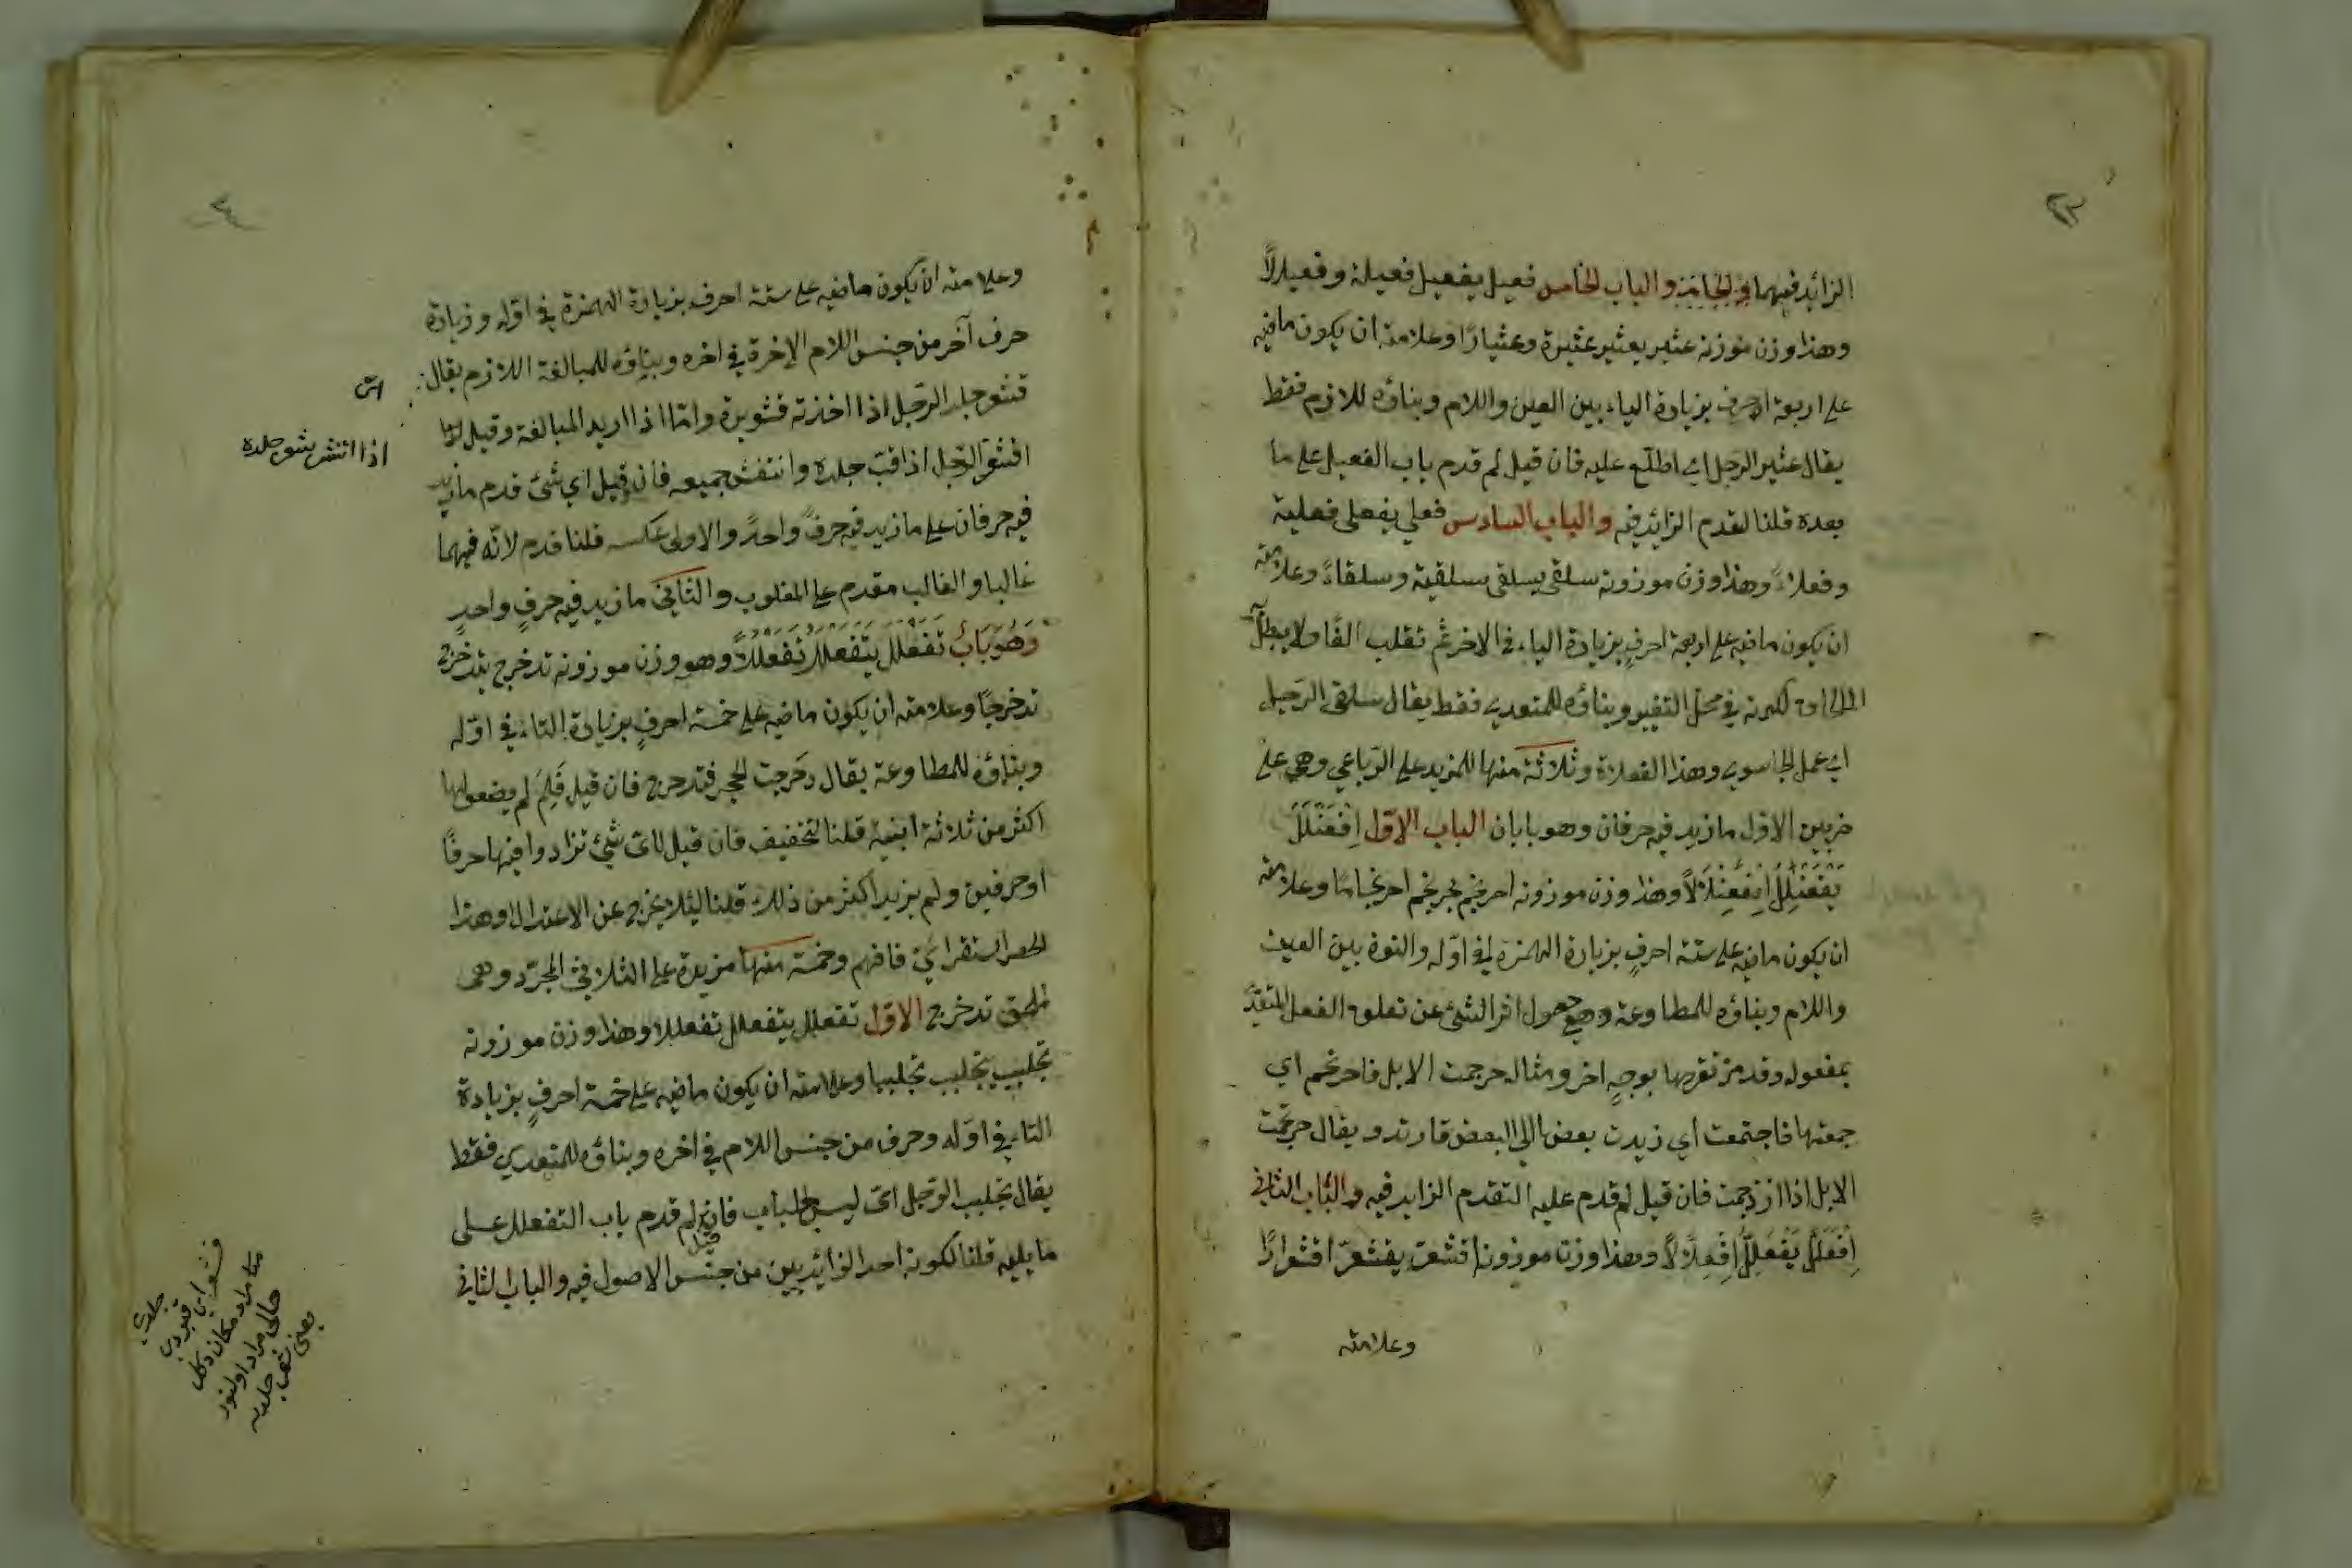 الزائد فيهما في الخامس والباب الخامس فعيل يفعيل فعيلة وفعيلالاً
وهذا وزن موزنه عثير يعثير عثيرة وعثيارًا وعلامته ان يكون ماضيه
على اربعة احرف بزيادة الياء بين العين واللام وبناؤه للازم فقط
يقال عثير الرجل اي اطلع عليه فان قيل لم قدم باب الفعيل على ما
بعده قلنا لقدم الزائد فيه والباب السادس فعلي يفعلي فعلية
وفعلاءً وهذا وزن موزونه سلقى يسلقي سلقية وسلقاءً وعلامته
ان يكون ماضيه على اربعة احرفٍ بزيادة الياء في الاخر ثم تقلب الفًا ولا يبطل
الالحاق لكونه في محل التغيير وبناؤه للمتعدي فقط يقال سلقى الرجل
اي عمل الجاسوي وهذا الفعلاة وثلاثة منها للمزيد على الرباعي وهي على
ضربين الاول ما زيد فيه حرفان وهو بابان الباب الاول اِفْعَنْلَلَ
يَفْعَنْلِلُ اِفْعِنْلَالاً وهذا وزن موزونه احرنجم يحرنجم احرنجامًا وعلامته
ان يكون ماضيه على ستة احرفٍ بزيادة الهمزة في اوّله والنون بين العين
واللام وبناؤه للمطاوعة وهي حصول اثر الشئ عن تعلق الفعل المتعدّ
بمفعوله وقد مرّ تقرها بوجهٍ اخر ومثاله حرجمت الابل فاحرنجم اي
جمعتها فاجتمعت اي زيدت بعضها الي البعض فارتد ويقال حرجمت
الابل اذا ازدجمت فان قيل لم قدم عليه التقدم الزايد فيه والباب الثاني
اِفْعَلَلَّ يَفْعَلِلُّ اِفْعِلَّالاً وهذا وزن موزونه اقشعرّ يقشعرّ اقشعرارًا
وعلامته
وعلامته ان يكون ماضيه على ستة احرف بزيادة الهمزة في اوّله وزيادة
حرف آخر من جنس اللام الاخرة في اخره وبناؤه للمبالغة اللازم يقال
قشعر جلد الرّجل اذا اخذته قشعريرة وامّا اذا اريد المبالغة وقيل
اقشعرّ الرّجل اذا قبّ جلده وانتفش جميعه فان قيل اي شئ قدم ما زيد
فيه حرفان على ما زيد فيه حرفً واحدً والاولى عكسه قلنا قدم لانّه فيهما
غالبا والغالب مقدم على المغلوب والثاني ما زيد فيه حرفٍ واحدٍ
وَهُوَ بَابُ تَفَعْلَلَ يَتَفَعْلَلُ تَفَعْلُلاً وهو وزن موزونه تدخرج يتدخرج
تدخرجًا وعلامته ان يكون ماضيه على خمسة احرفٍ بزيادة التاء في اوّله
وبناؤه للمطاوعة يقال دحرجت الحجر فتدحرج فان قيل فَلِمَ لم يضعوا لها
اكثر من ثلاثة ابنية قلنا لتخفيف فان قيل لايّ شئ تزادوا فيها حرفًا
او حرفين ولم يزيدا كثر من ذلك قلنا ليئلا يخرج عن الاعتدال وهذا
الحصر استقرائيّ فافهم وخمسة منها مزيدة على الثلاثيّ المجرّد وهي
ملحق تدخرج الاوّل تفعلل يتفعلل تفعللا وهذا وزن موزونه
تجلبب يتجلبب تجلببا وعلامته ان يكون ماضيه على خمسة احرفٍ بزيادة
التاء في اوّله وحرف من جنس اللام في اخره وبناؤه للمتعدي فقط
يقال تجلبب الرّجل ايّ لبس جلباب فان قيل لم قدم باب التفعلل على
ما يليه قلنا لكونه احد الزائديين من جنس الاصول فيه والباب الثاني
اذا انتشر بشور جلده